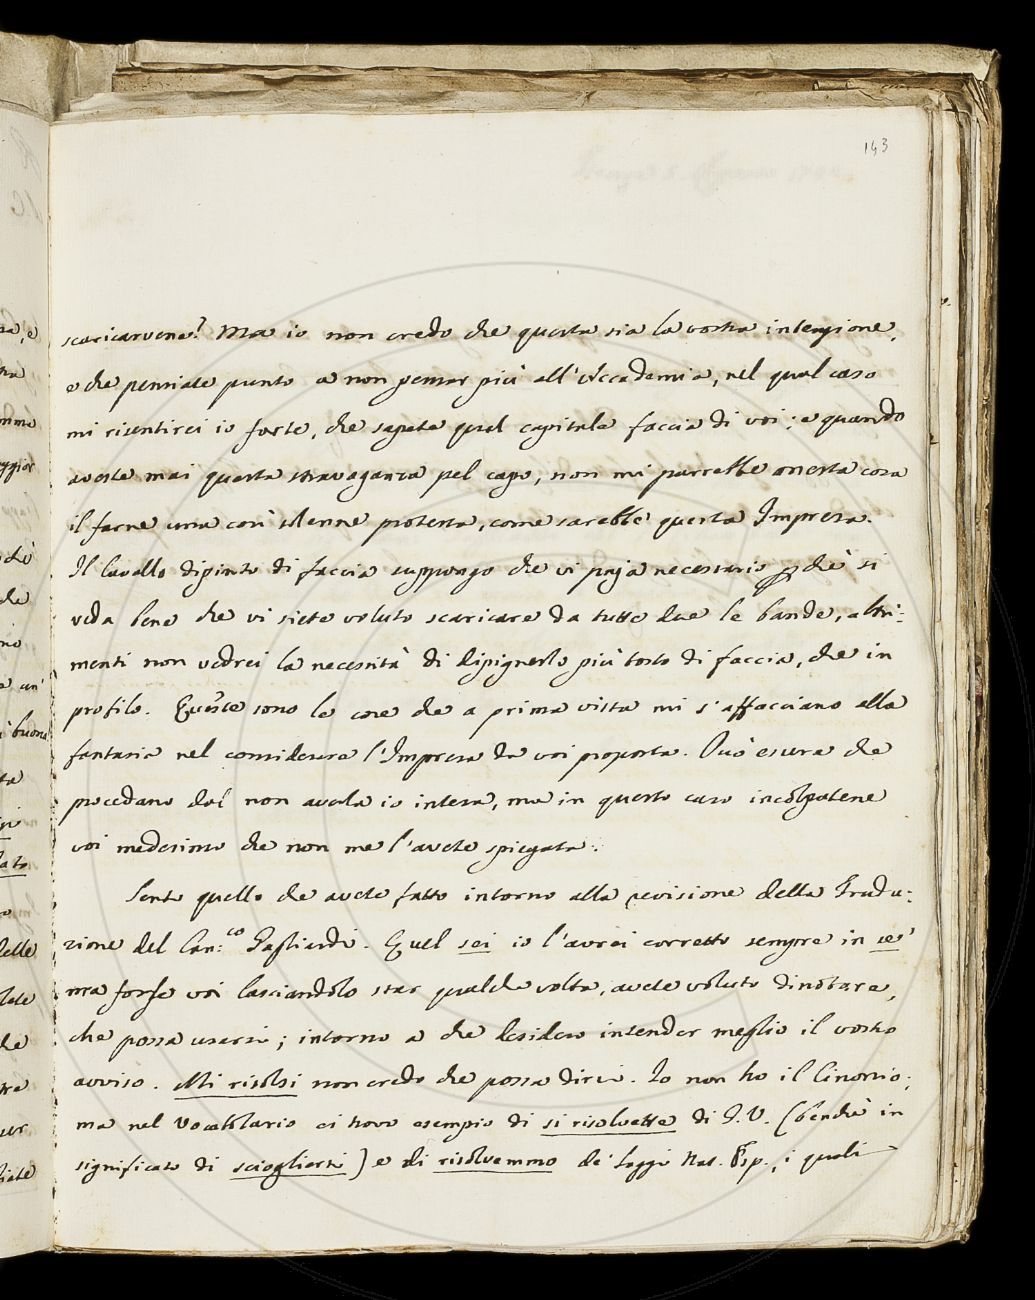 143
scaricarvene? Ma io non credo che questa sia la vostra intenzione,
e che pensiate punto a non pensar più all'Accademia, nel qual caso
mi risentirei io forte, che sapete qual capitale faccia di voi; e quando
aveste mai questa stravaganza pel capo, non mi parrebbe onesta cosa
il farne una così solenne protesta, come sarebbe questa Impresa.
Il Cavallo dipinto di faccia suppongo che vi paja necessario perchè si
veda bene che vi siete voluto scaricare da tutte due le bande, altri-
menti non vedrei la necessità di dipignerlo più tosto di faccia, che in
profilo. Queste sono le cose che a prima vista mi s'affacciano alla
fantasia nel considerare l'Impresa da voi proposta. Può essere che
procedano dal non averla io intesa, ma in questo caso incolpatene
voi medesimo che non me l'avete spiegata.
Sento quello che avete fatto intorno alla revisione della Tradu-
zione del Can.co Gagliardi. Quel sei io l'avrei corretto sempre in se'
ma forse voi lasciandolo star qualche volta, avete voluto dinotare,
che possa usarsi; intorno a che desidero intender meglio il vostro
avviso. Mi risolsi non credo che possa dirsi. Io non ho il Cinonio;
ma nel Vocabolario ci trovo esempio di si risolvette di G.V. (benchè in
significato di sciogliersi) e di risolvemmo de' Saggi Nat. Esp., i quali